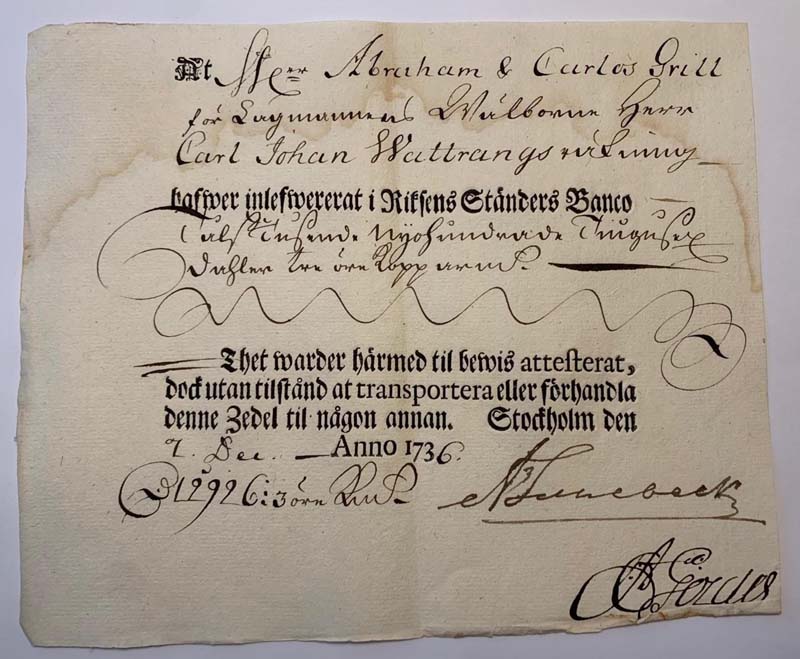 At HHer Abraham & Carlos Grill
för Lagmannens Wälborne Herr
Carl Johan Wattrangs räkning
hafwer inlefwererat i Riksens Ständers Banco
Tolf Tusende Nyohundrade Tiugusex
Dahler tre öre Kopparmt.
Thet warder härmed til bewis attesterat,
dock utan tilstånd at transportera eller förhandla
denne Zedel til någon annan. Stockholm den
7. Dec. Anno 1736.
D 12926:3 öre Kmt.